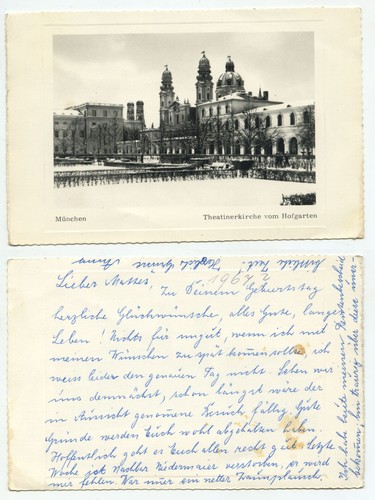 München
Theatinerkirche vom Hofgarten
Lieber Matthes, 1967
Zu Deinem Geburtstag
herzliche Glückwünsche, alles Gute, langes
Leben! Nichts für ungut, wenn ich mit
meinen Wünschen zu spät kommen sollte, ich
weiss leider den genauen Tag nicht. Sehen wir
uns demnächst, schon längst wäre der
in Aussicht genommene Besuch fällig. Gute
Gründe werden Euch wohl abgehalten haben.
Hoffentlich geht es Euch allen recht gut. Letzte
Woche ist Nachbar Niedermaier verstorben, er wird
mir fehlen. War mir ein netter
Ich habe heute meinen
bekommen, bin traurig über diese
Herzliche Grüsse Anna